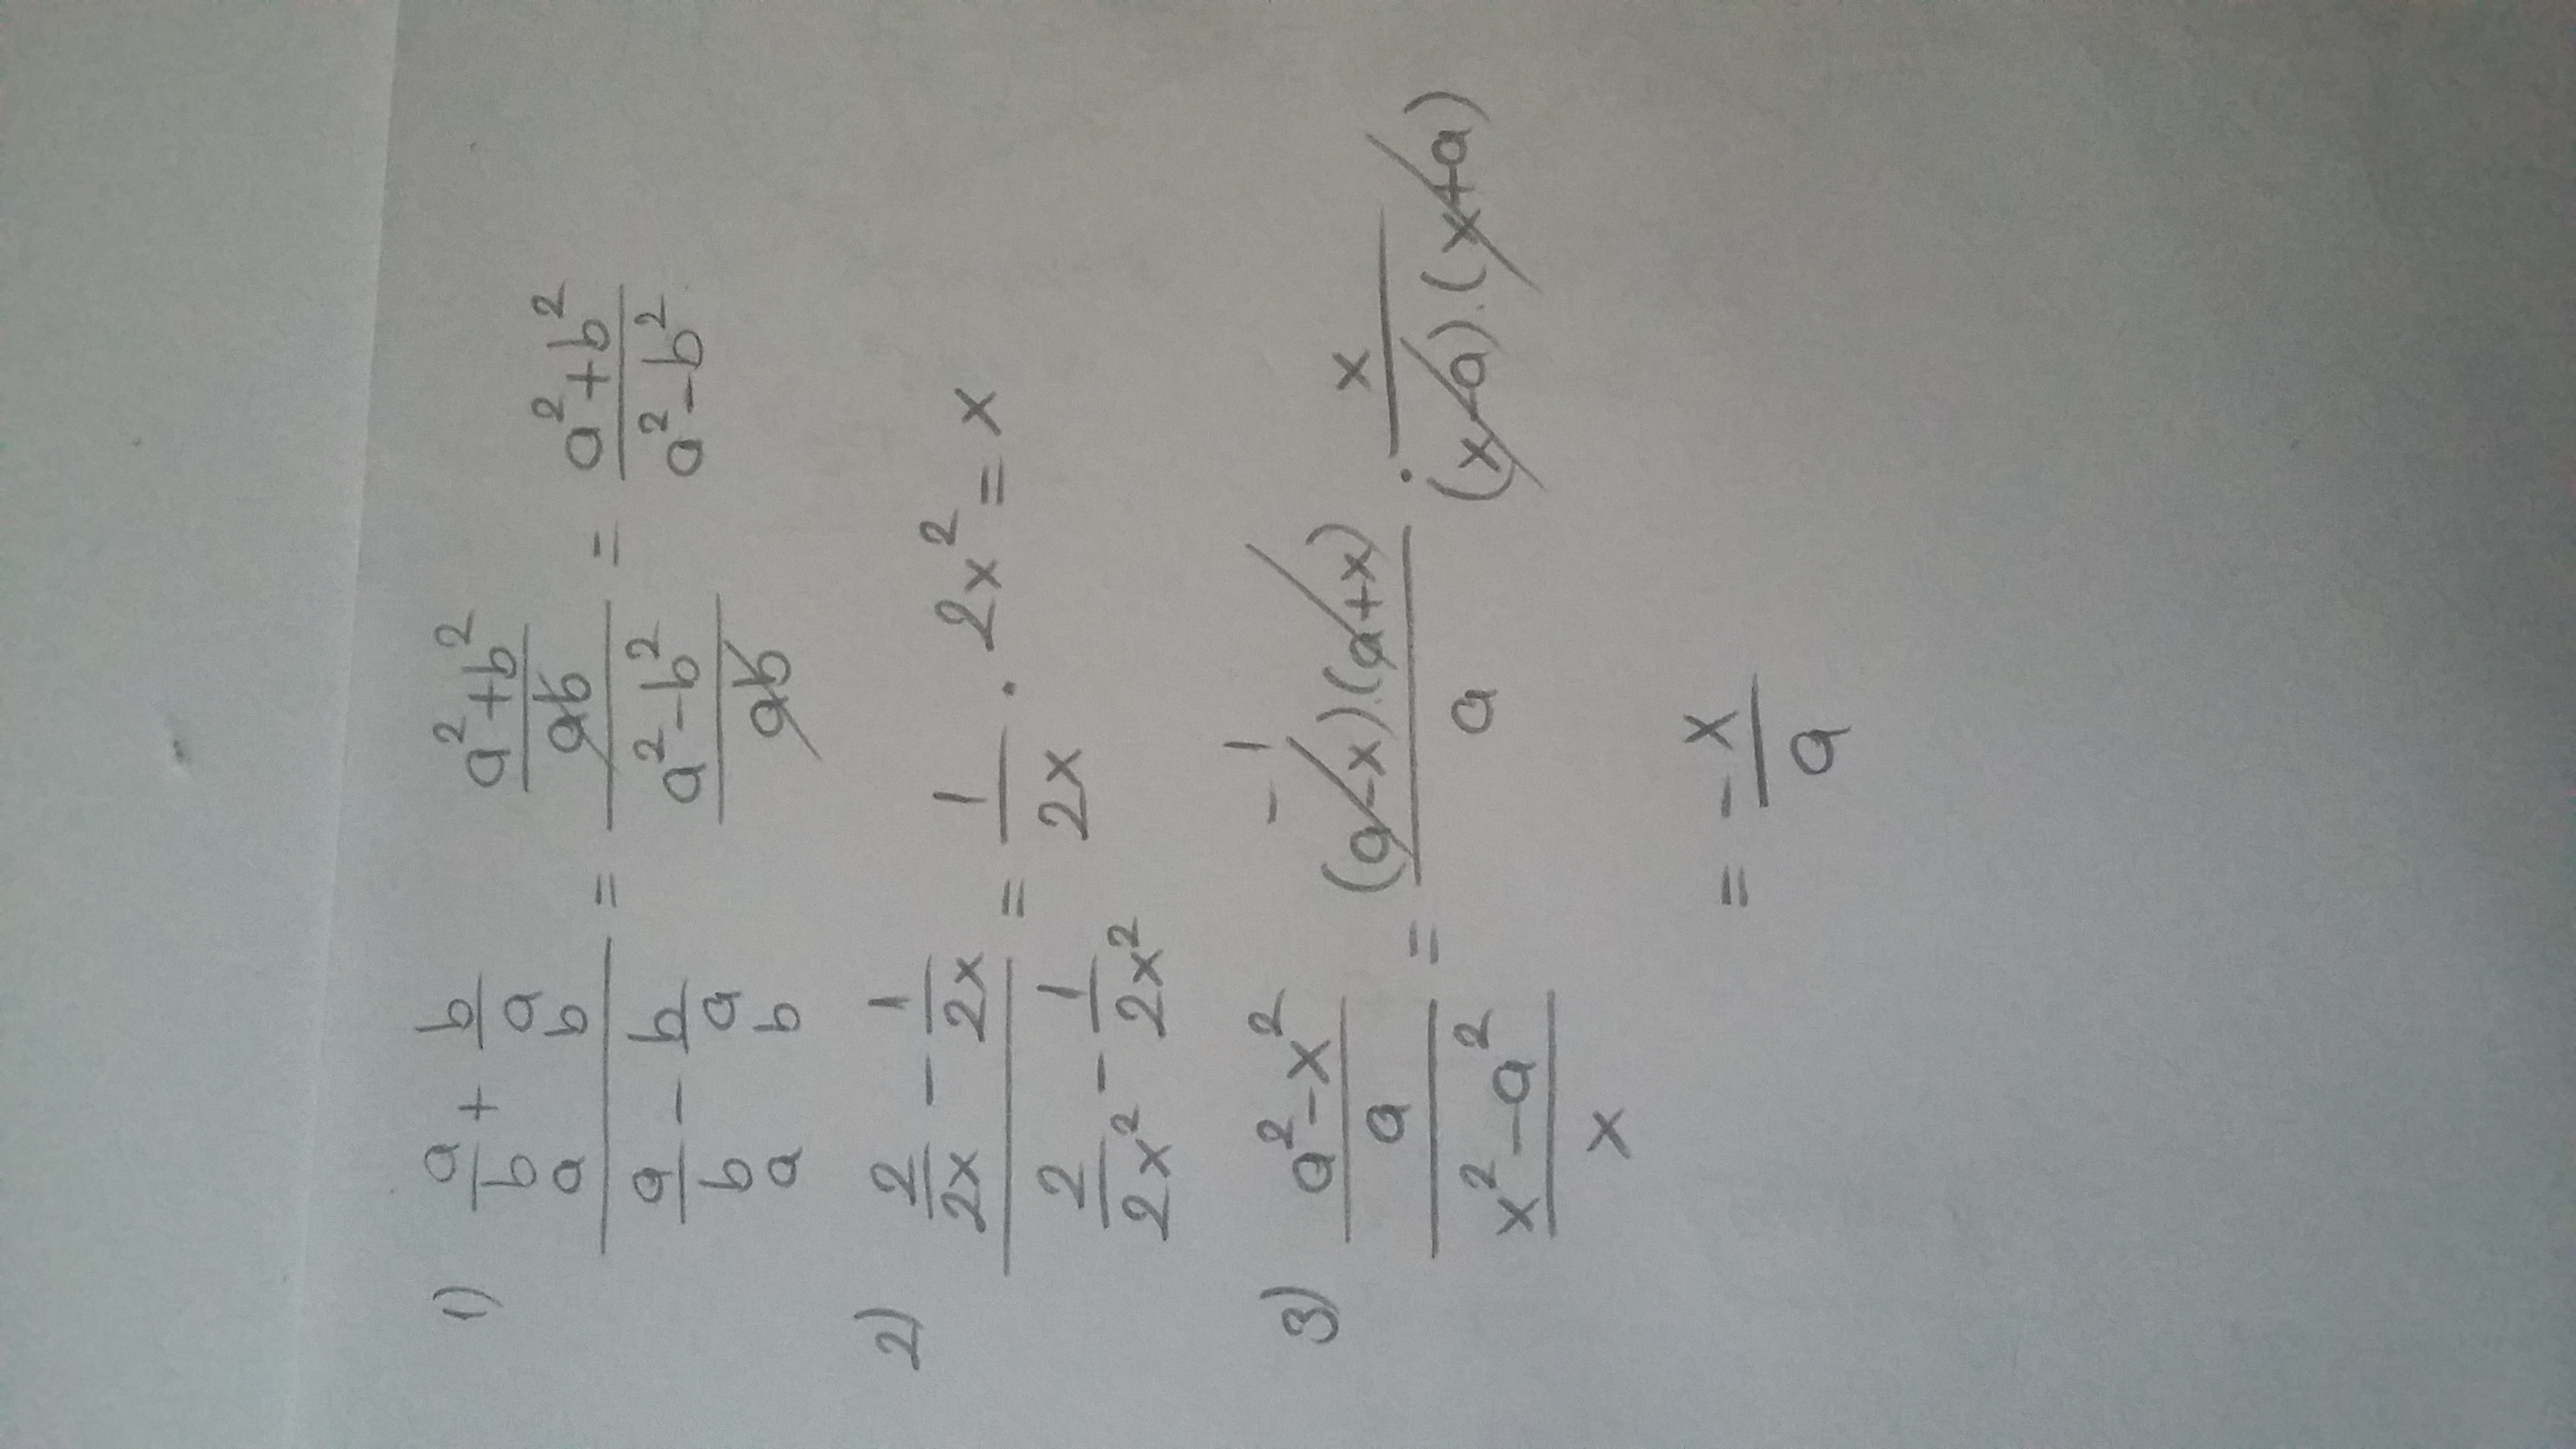 1) (a/b + b/a)/(a/b - b/a) = ((a²+b²)/ab)/((a²-b²)/ab) = (a²+b²)/(a²-b²)
a b
a b
2) (2/2x - 1/2x)/(2/2x² - 1/2x²) = 1/2x · 2x² = x
3) ((a²-x²)/a)/((x²-a²)/x) = ((a-x).(a+x))/a · x/((x-a).(x+a))
-1
= -x/a